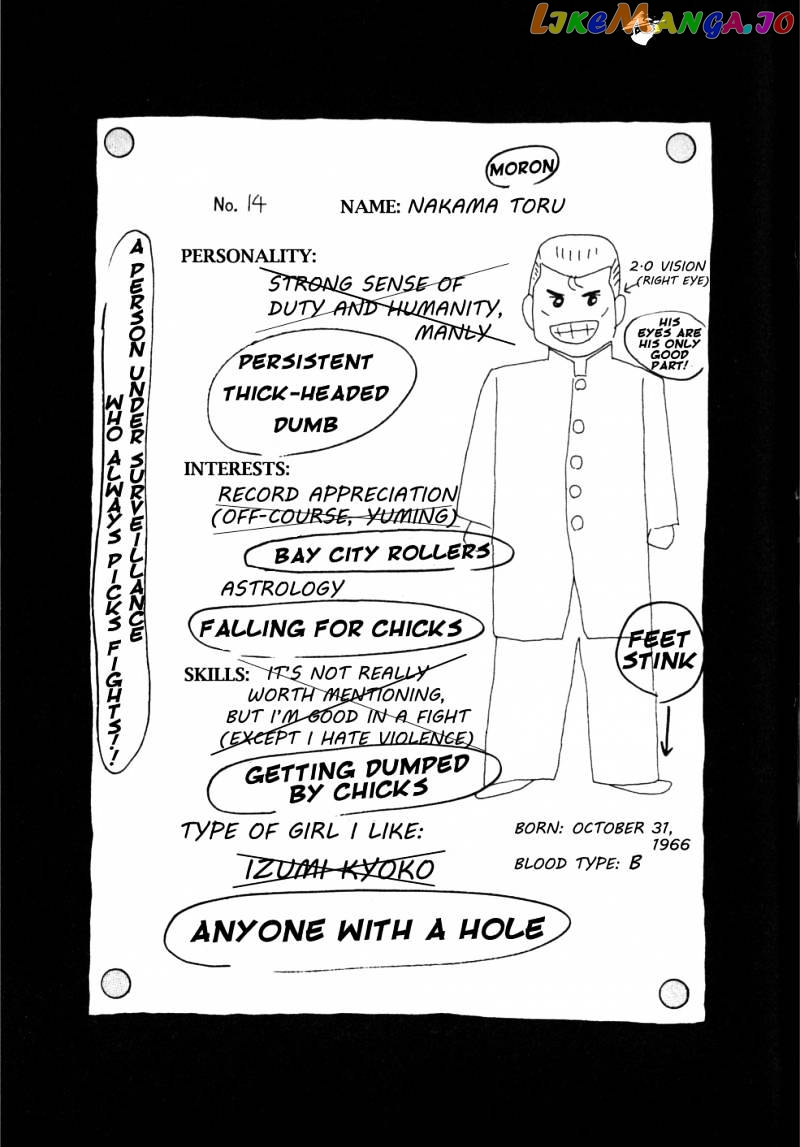 LIKEMANGA.IO
MORON
No. 14
NAME: NAKAMA TORU
A PERSON UNDER SURVEILLANCE
WHO ALWAYS PICKS FIGHTS!!
PERSONALITY:
STRONG SENSE OF
DUTY AND HUMANITY,
MANLY
PERSISTENT
THICK-HEADED
DUMB
2.0 VISION
(RIGHT EYE)
HIS
EYES ARE
HIS ONLY
GOOD
PART!
INTERESTS:
RECORD APPRECIATION
(OFF-COURSE, YUMING)
BAY CITY ROLLERS
ASTROLOGY
FALLING FOR CHICKS
FEET
STINK
SKILLS: IT'S NOT REALLY
WORTH MENTIONING,
BUT I'M GOOD IN A FIGHT
(EXCEPT I HATE VIOLENCE)
GETTING DUMPED
BY CHICKS
TYPE OF GIRL I LIKE:
IZUMI KYOKO
ANYONE WITH A HOLE
BORN: OCTOBER 31,
1966
BLOOD TYPE: B